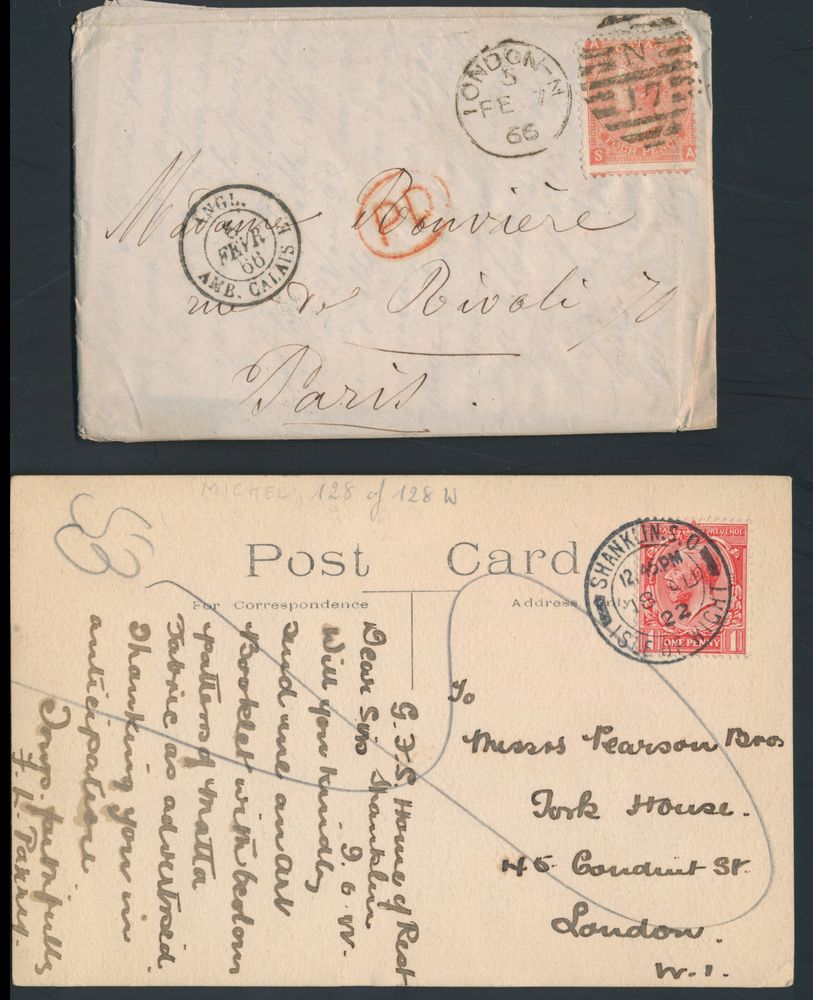 LONDON-N
5
FE 7
66
N
17
FOUR PENCE
S A
PD
ANGL.
FEVR
66
AMB. CALAIS
Madame Rouvière
rue de Rivoli 70
Paris.
MICHEL, 128 of 128 W
Post Card
For Correspondence
Address Only
SHANKLIN.S.O
12.45PM
18 AU
22
ISLE OF WIGHT
REVENUE
ONE PENNY 1
G.F.S. Home of Rest
Shanklin
I. o. W.
Dear Sirs
Will you kindly
send me an Art
Booklet with bedroom
patterns of Matta
Fabric as advertised.
Thanking you in
anticipation
Yours faithfully
To
Messrs Pearson Bros
York House.
45 Conduit St.
London.
W.1.